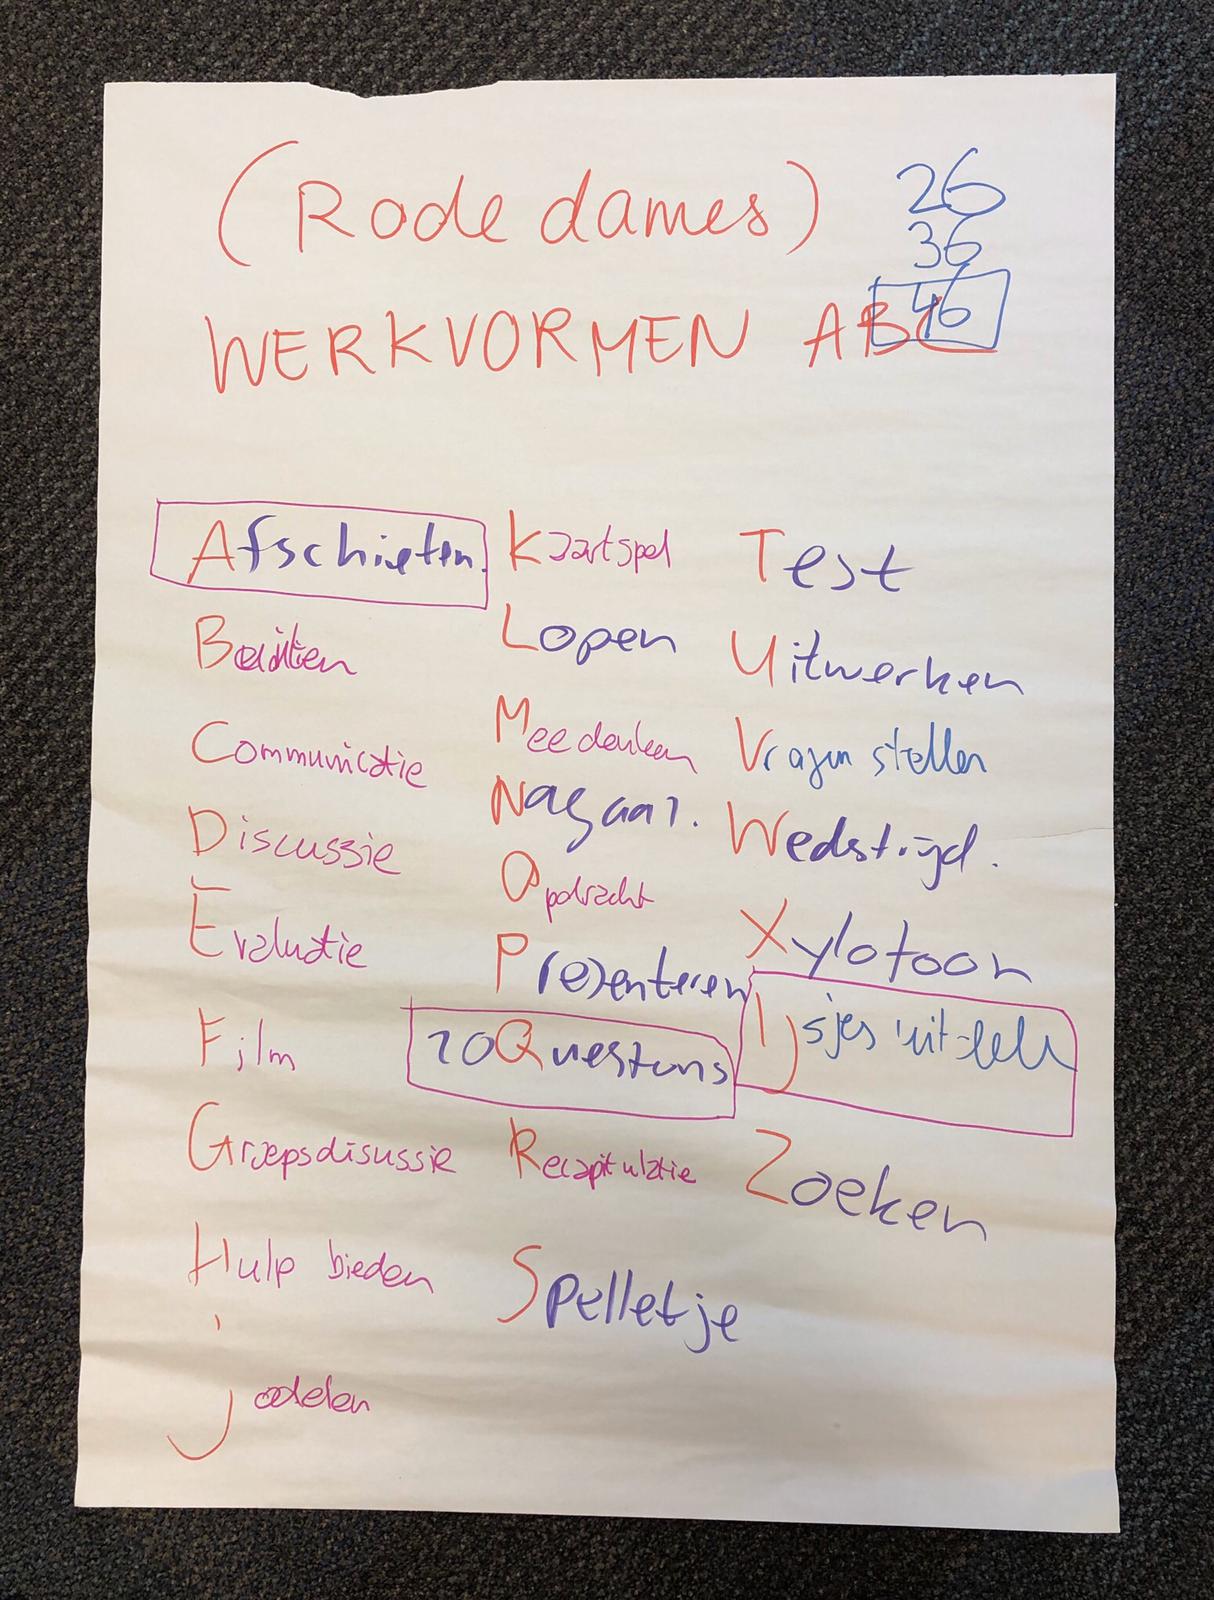 (Rode dames)
26
36
46
WERKVORMEN ABC
Afschieten.
Communicatie
Discussie
Evaluatie
Film
Groepsdisussie
Hulp bieden
Jodelen
Kaartspel
Lopen
Meedenken
Opdracht
Presenteren
20 Questions
Recapitulatie
Spelletje
Test
Uitwerken
Vragen stellen
Wedstrijd.
Xylofoon
IJsjes uit
Zoeken